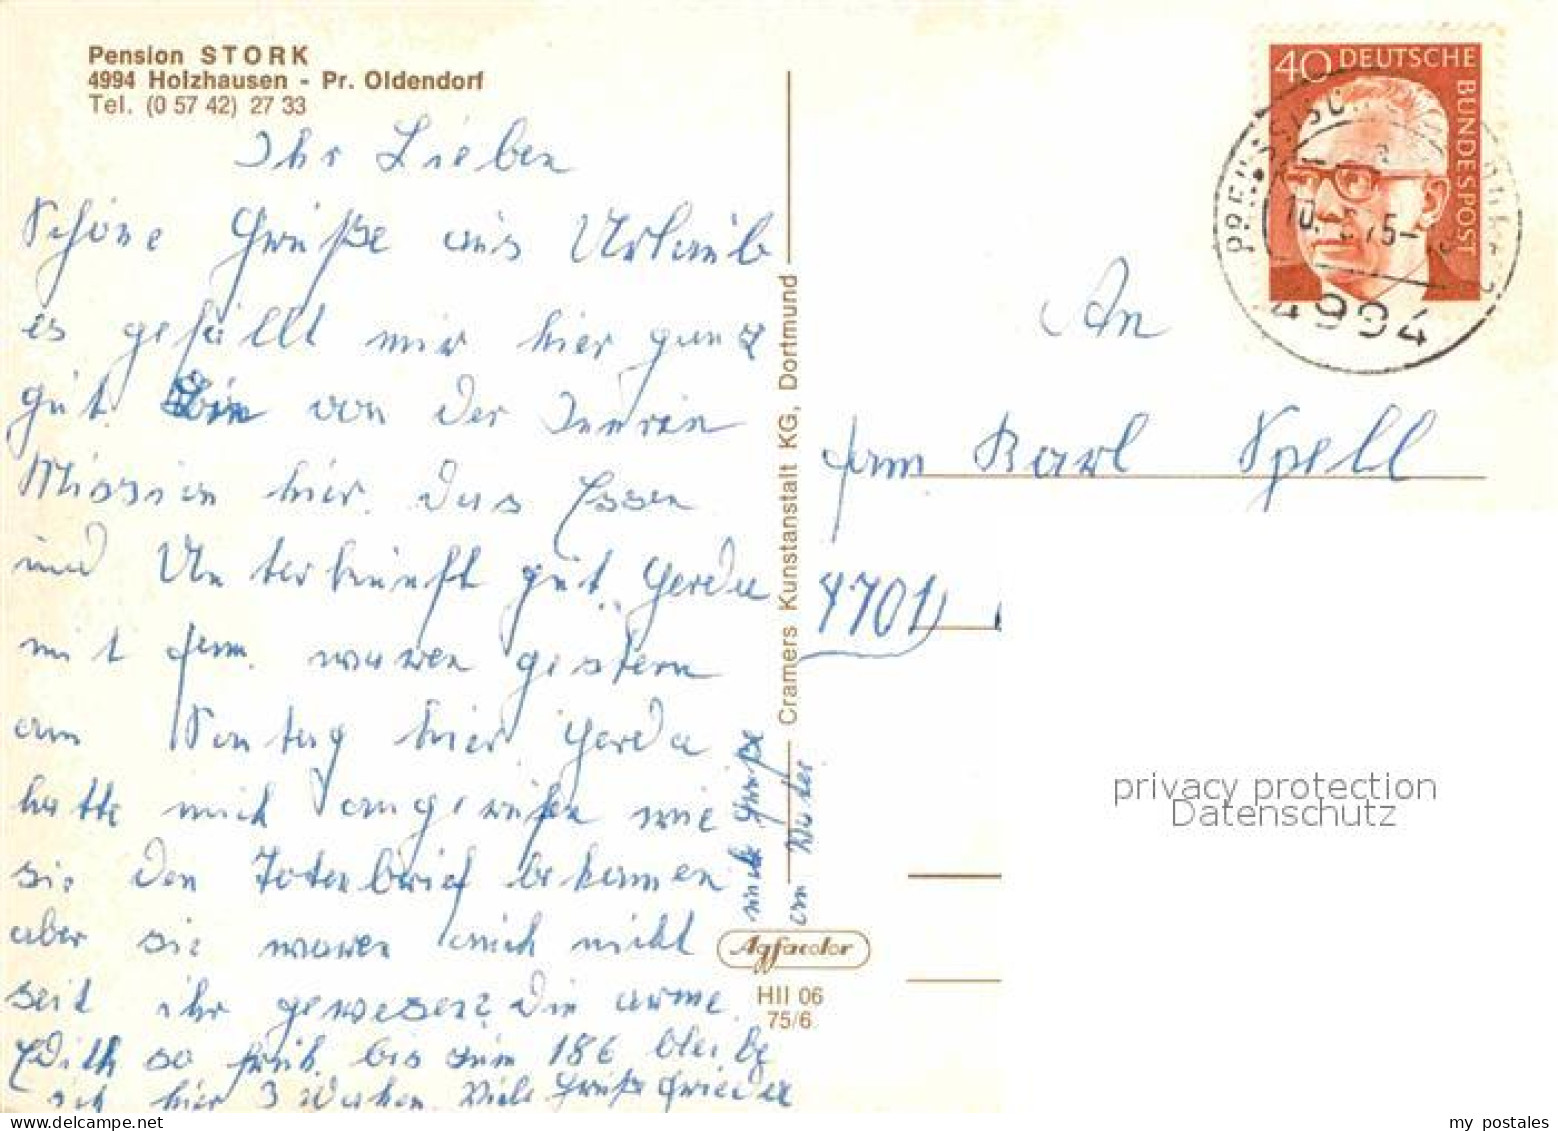 Pension STORK
4994 Holzhausen - Pr. Oldendorf
Tel. (0 57 42) 27 33
Ihr Lieben
Schöne Grüße aus Urlaub
es gefällt mir hier ganz
gut. Bin von der Inneren
Mission hier. Das Essen
und Unterkunft gut. Gerda
mit Fam. waren gestern
am Sontag hier. Gerda
hatte mich angerufen wie
sie den Totenbrief bekamen
aber sie waren auch nicht
seit ihr gewesen? Die arme
Edith so früh. bis zum 18 6 bleibe
ich hier 3 Wochen. Viele Grüße Frieda
auch Grüße
an Walter
Cramers Kunstanstalt KG, Dortmund
Agfacolor
HII 06
75/6
40 DEUTSCHE BUNDESPOST
4994
An
Fam Karl Spell
4701
privacy protection
Datenschutz
my postales